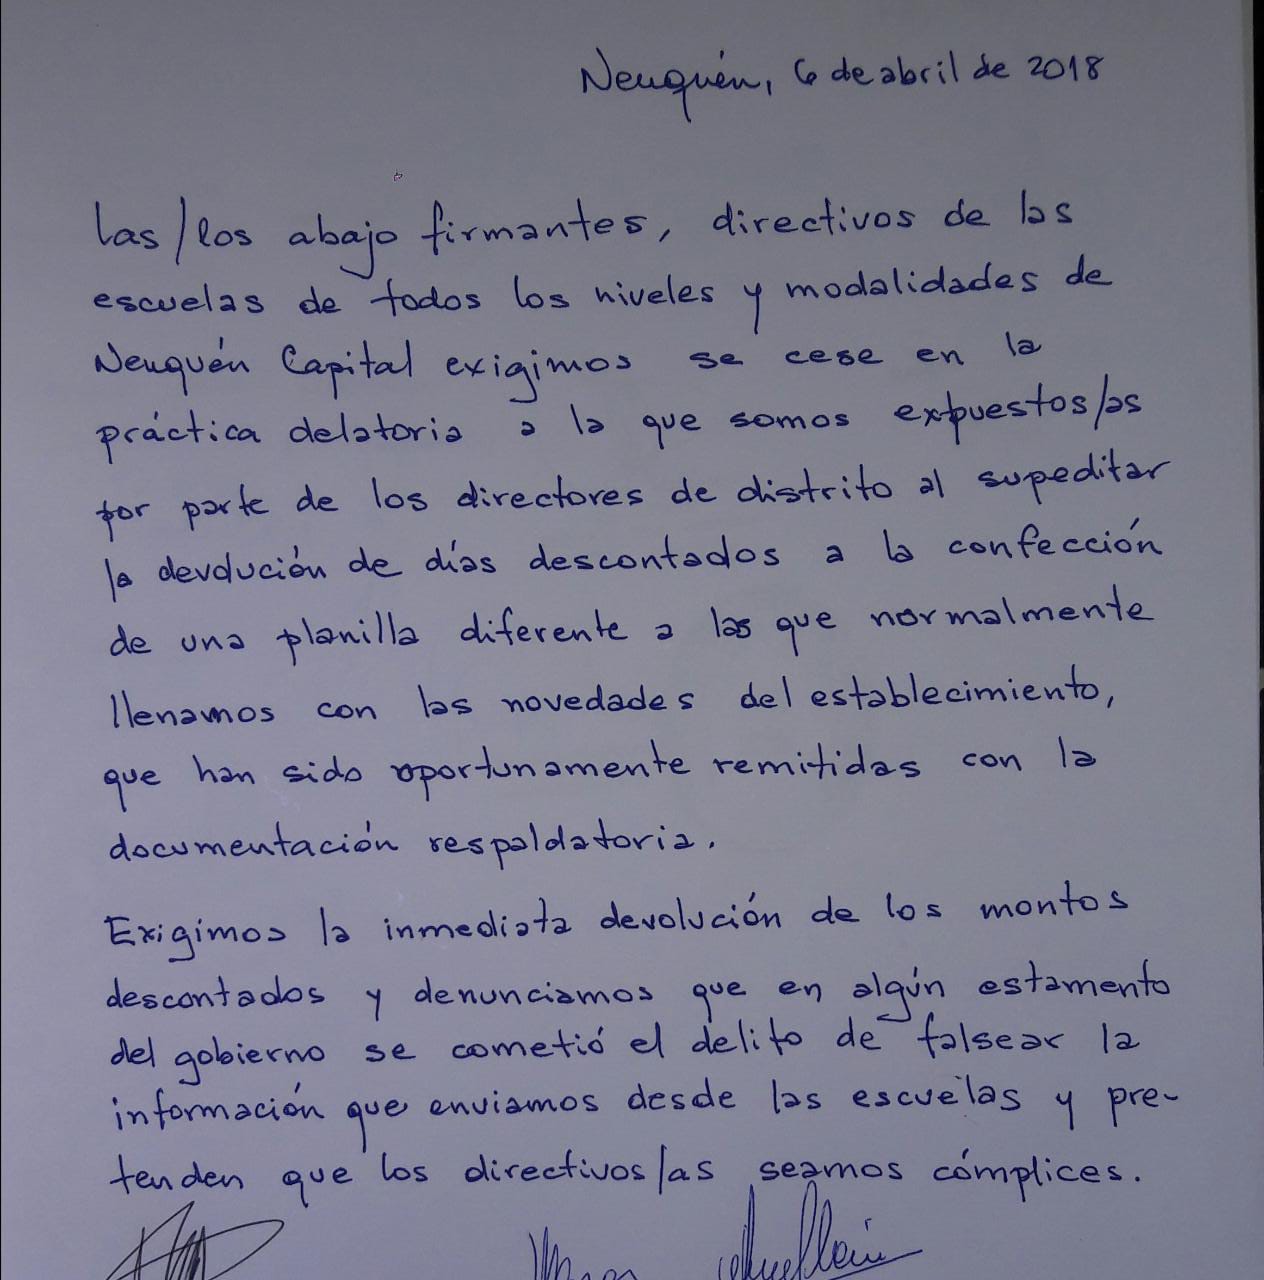 Neuquén, 6 de abril de 2018
Las/los abajo firmantes, directivos de las
escuelas de todos los niveles y modalidades de
Neuquén Capital exigimos se cese en la
práctica delatoria a la que somos expuestos/as
por parte de los directores de distrito al supeditar
la devolución de días descontados a la confección
de una planilla diferente a las que normalmente
llenamos con las novedades del establecimiento,
que han sido oportunamente remitidas con la
documentación respaldatoria.
Exigimos la inmediata devolución de los montos
descontados y denunciamos que en algún estamento
del gobierno se cometió el delito de falsear la
información que enviamos desde las escuelas y pre-
tenden que los directivos/as seamos cómplices.